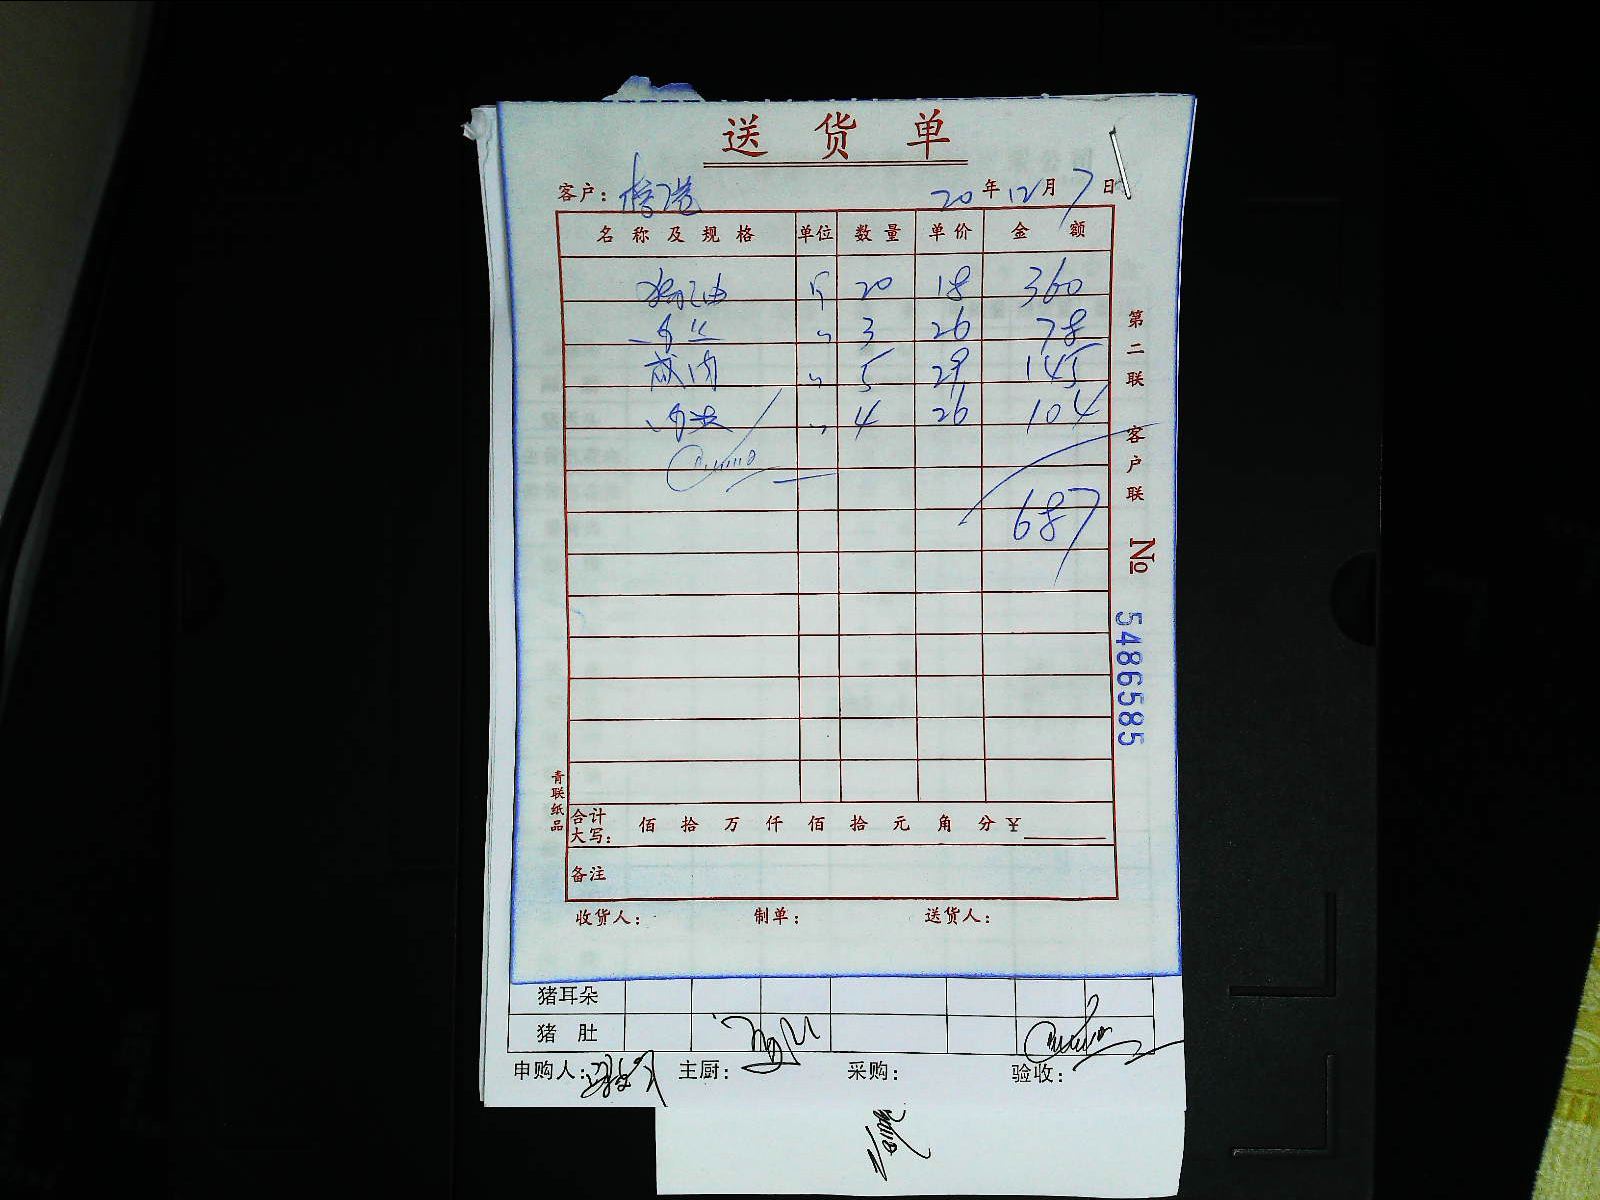 送货单
客户: 20年12月7日
名称及规格 单位 数量 单价 金额
猪油 斤 20 18 360
肉丝 〃 3 26 78
瘦肉 〃 5 29 145
〃 4 26 104
687
第二联 客户联
№ 5486585
青联纸品
合计大写: 佰 拾 万 仟 佰 拾 元 角 分 ¥
备注
收货人: 制单: 送货人:
猪耳朵
猪肚
申购人: 主厨: 采购: 验收: